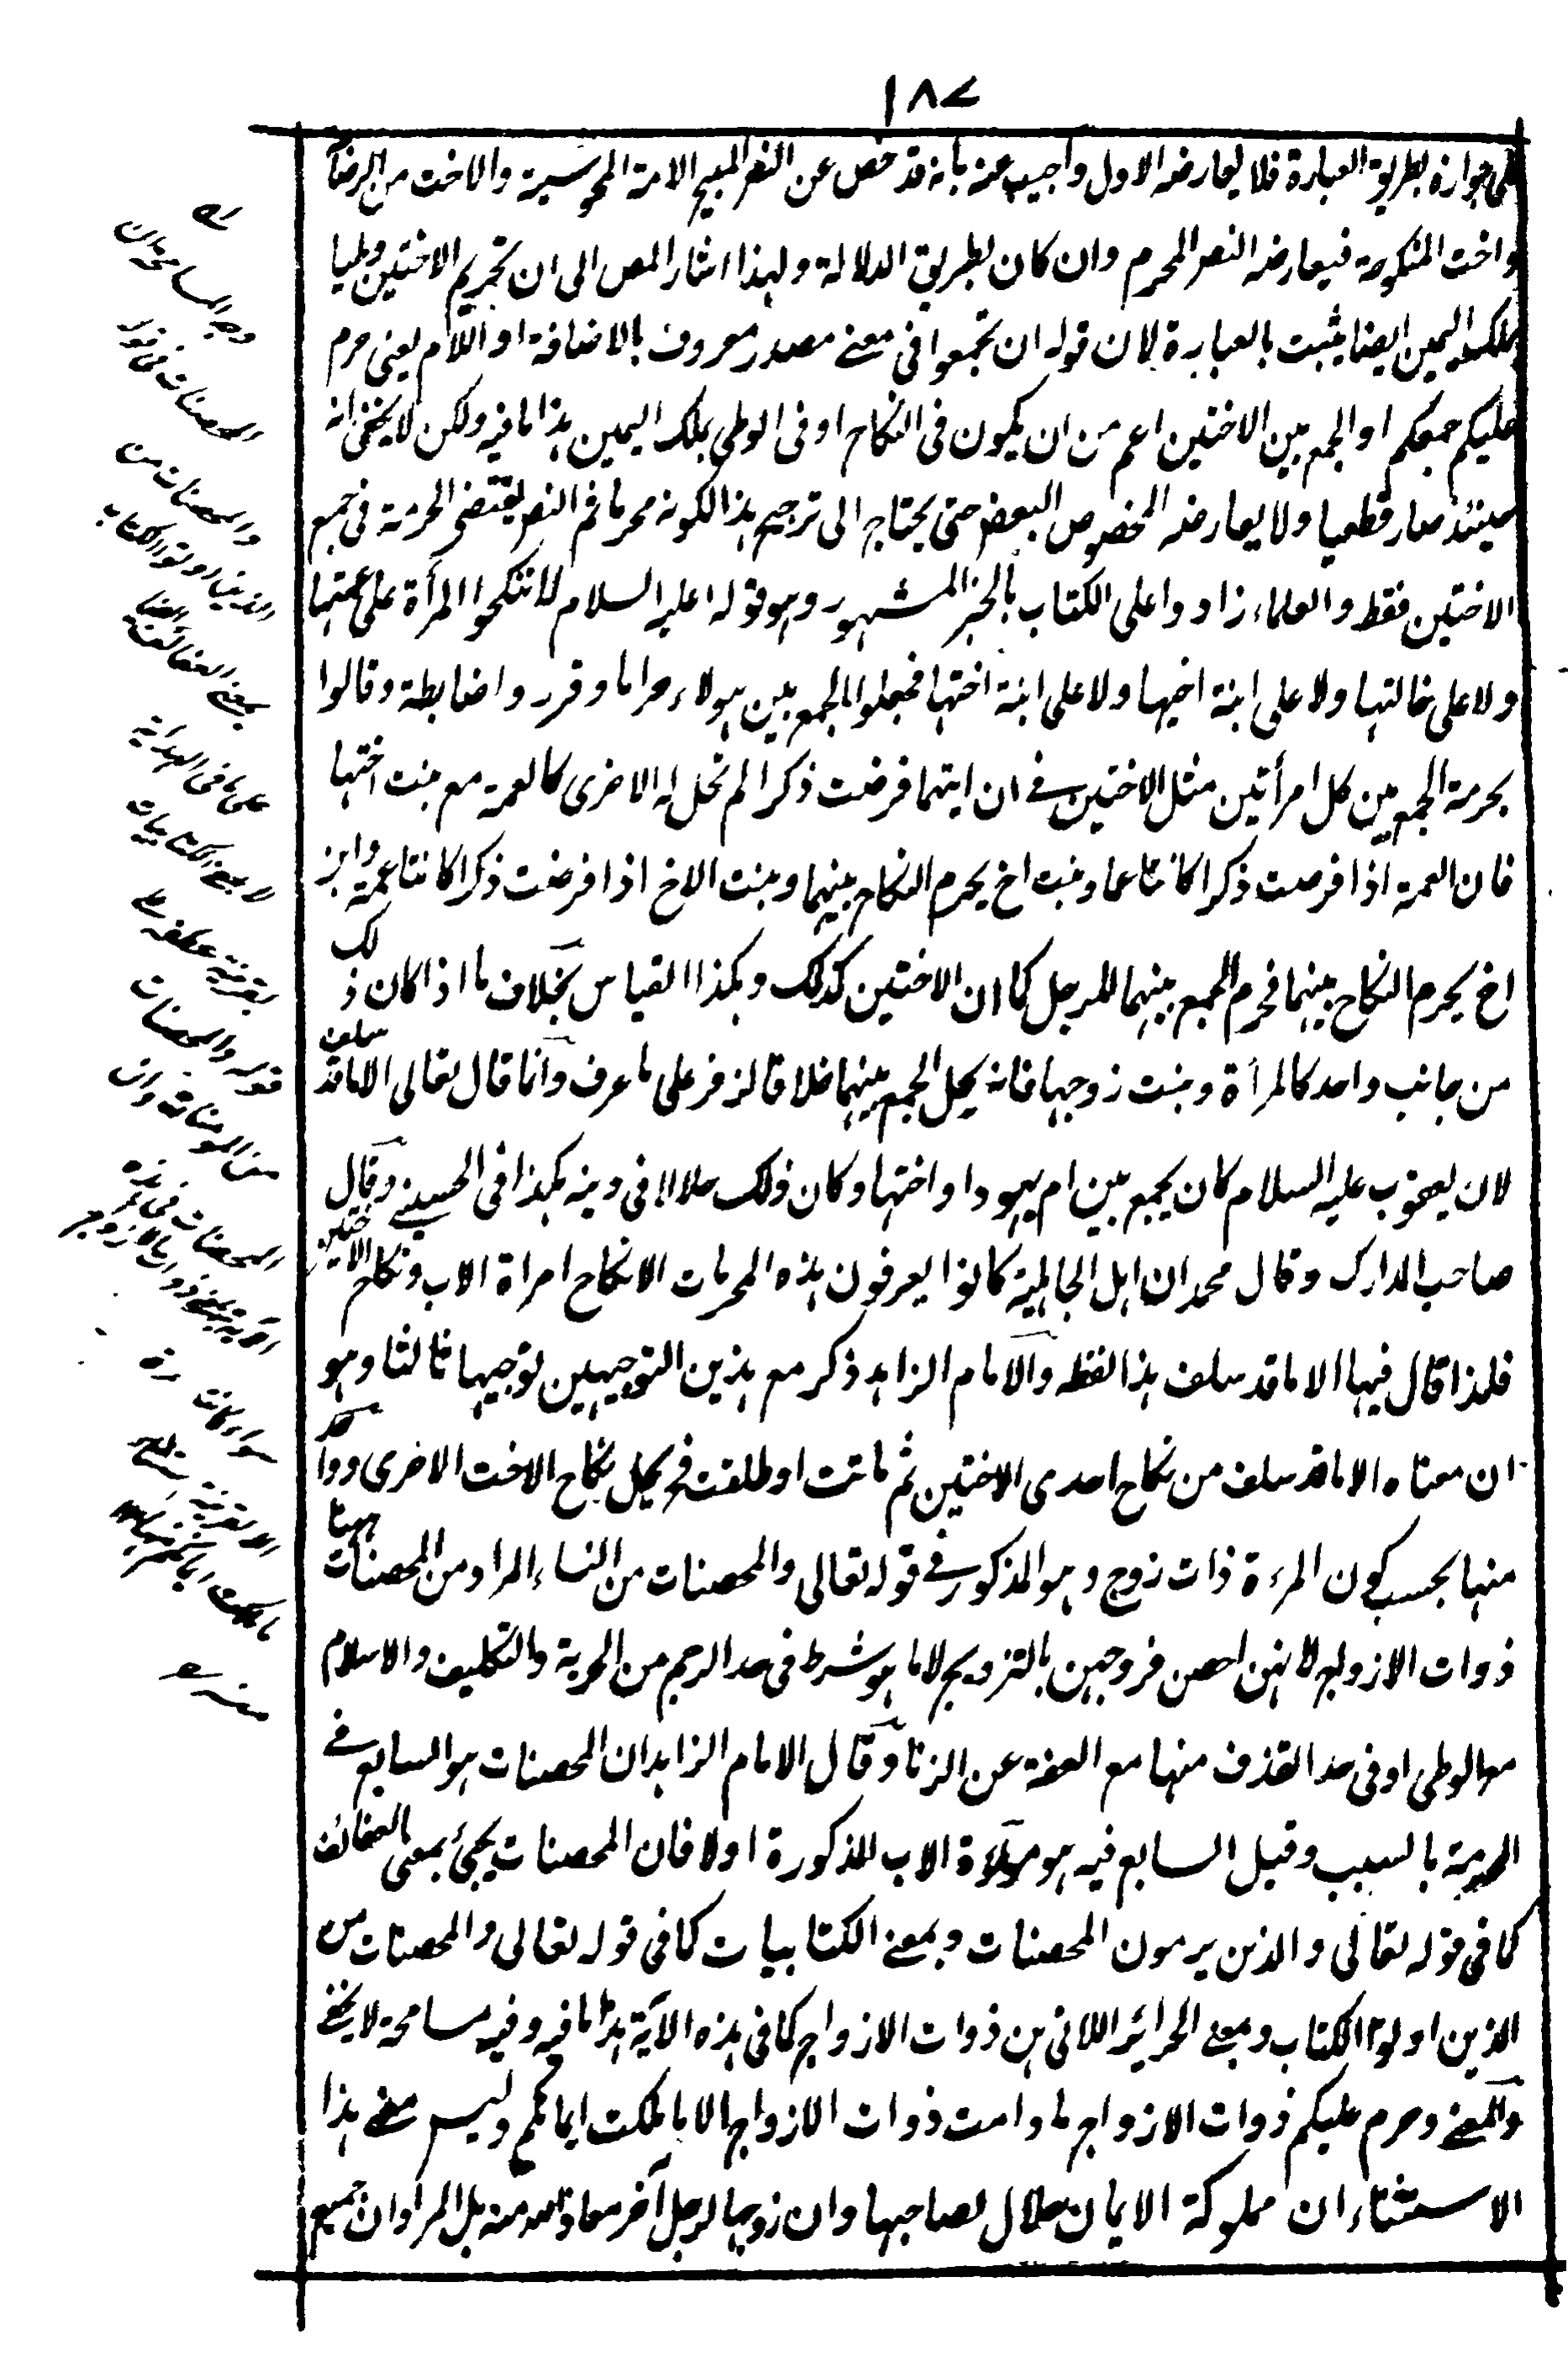 ١٨٧
على جوازه بطريق العبارة فلا يعارضه الاول واجيب عنه بانه قد خص عن النص المبيح الامة المجوسية والاخت من الرضاء
واخت المنكوحة فيعارضه النص المحرم وان كان بطريق الدلالة ولهذا اشار المص الى ان تحريم الاختين وطيا
بملك اليمين ايضا يثبت بالعبارة لان قوله ان تجمعوا فى معنى مصدر معروف بالاضافة او اللام يعنى حرم
عليكم جمعكم او الجمع بين الاختين اعم من ان يكون فى النكاح او فى الوطى بملك اليمين هذا ما فيه ولكن لا يخفى انه
حينئذ صار قطعيا ولا يعارضه المخصوص البعض حتى يحتاج الى ترجيح هذا لكونه محرما ثم النص يقتضى الحرمة فى جمع
الاختين فقط والعلماء زادوا على الكتاب بالخبر المشهور وهو قوله عليه السلام لا تنكحوا المرأة على عمتها
ولا على خالتها ولا على ابنة اخيها ولا على ابنة اختها فجعلوا الجمع بين هولاء حراما وقرروا ضابطة وقالوا
بحرمة الجمع بين كل امرأتين مثل الاختين فى ان ايتهما فرضت ذكرا لم تحل له الاخرى كالعمة مع بنت اختها
فان العمة اذا فرضت ذكرا كانتا عما وبنت اخ يحرم النكاح بينهما وبنت الاخ اذا فرضت ذكرا كانتا عمة وابن
اخ يحرم النكاح بينهما فحرم الجمع بينهما للرجل كما ان الاختين كذلك وهكذا القياس بخلاف ما اذا كان ذلك
من جانب واحد كالمرأة وبنت زوجها فانه يحل الجمع بينهما خلافا لزفر على ما عرف وانما قال تعالى الا ما قد سلف
لان يعقوب عليه السلام كان يجمع بين ام يهودا واختها وكان ذلك حلالا فى دينه هكذا فى الحسينى وقال
صاحب المدارك وقال محمد ان اهل الجاهلية كانوا يعرفون هذه المحرمات الا نكاح امراة الاب ونكاح الاختين
فلهذا قال فيها الا ما قد سلف هذا لفظه والامام الزاهد ذكر مع هذين التوجيهين توجيها ثالثا وهو
ان معناه الا ما قد سلف من نكاح احدى الاختين ثم ماتت او طلقت فيحل نكاح الاخت الاخرى وواحد
منها بحسب كون المرءة ذات زوج وهو المذكور فى قوله تعالى والمحصنات من النساء المراد من المحصنات ههنا
ذوات الازواج لانهن احصن فروجهن بالتزويج لا ما هو شرط فى حد الرجم من الحرية والتكليف والاسلام
مع الوطى او فى حد القذف منها مع العفة عن الزنا وقال الامام الزاهد ان المحصنات هو السابع فى
الحرمة بالسبب وقيل السابع فيه هو منكوحة الاب المذكورة اولا فان المحصنات يجئ بمعنى العفائف
كما فى قوله تعالى والذين يرمون المحصنات وبمعنى الكتابيات كما فى قوله تعالى والمحصنات من
الذين اوتوا الكتاب وبمعنى الحرائر اللاتى هن ذوات الازواج كما فى هذه الآية هذا ما فيه وفيه مسامحة لا يخفى
والمعنى وحرم عليكم ذوات الازواج ما دامت ذوات الازواج الا ما ملكت ايمانكم وليس معنى هذا
الاستثناء ان مملوكة الايمان حلال لصاحبها وان زوجها لرجل آخر معاذ الله منه بل المراد ان جميع
وجه المسامحة ان
المحصنات فى قوله
والمحصنات من
الذين اوتوا الكتاب
بمعنى العفائف ايضا
على ما فى الهداية
لا بمعنى الكتابيات
بقرينة عطفه على
قوله والمحصنات
من المومنات وان
المحصنات فى هذه
الآية بمعنى ذوات الازواج
سواء كانت